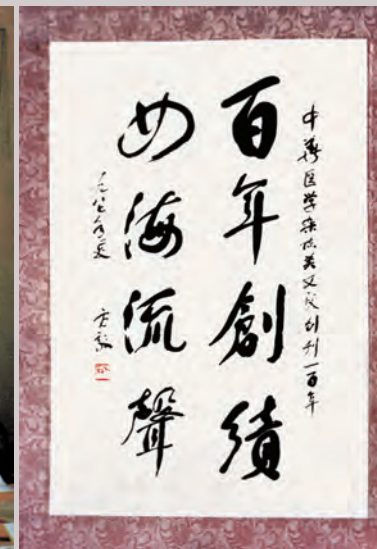 中華医学杂志英文版创刊一百年
百年創績
四海流聲